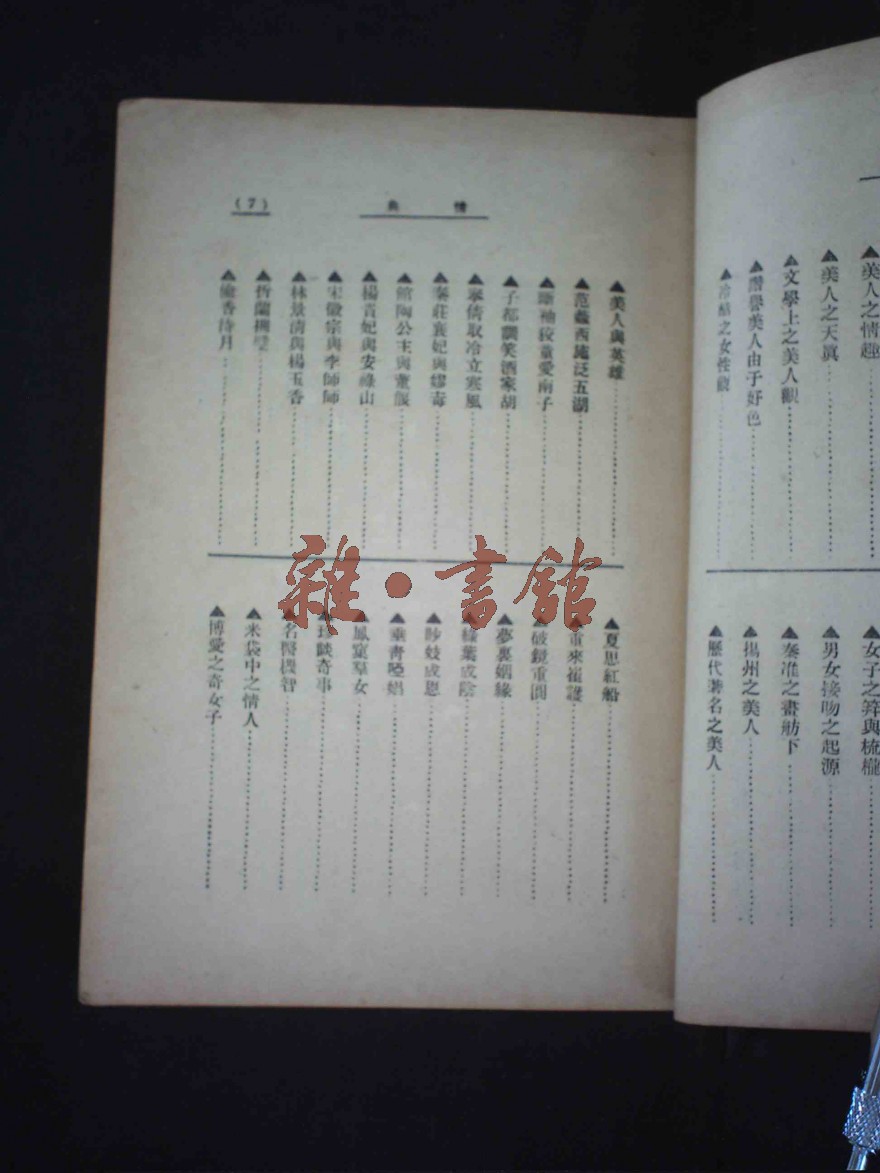 美人之情趣
▲美人之天眞
▲文學上之美人觀
▲讚譽美人由于好色
▲冷酷之女性觀
女子之笄與梳櫳
▲男女接吻之起源
▲秦淮之畫舫下
▲揚州之美人
▲歷代著名之美人
情典
(7)
▲美人與英雄
▲范蠡西施泛五湖
▲斷袖後童愛南子
▲子都調笑酒家胡
▲寧倩取冷立寒風
▲秦莊襄妃與嫪毐
▲館陶公主與董偃
▲楊貴妃與安祿山
▲宋徽宗與李師師
▲林景清與楊玉香
▲偷香待月
▲夏思紅船
▲重來崔護
▲破鏡重圓
▲夢裏姻緣
▲綠葉成陰
▲眇妓成恩
▲乘靑啞娼
▲鳳窠羣女
▲珍談奇事
▲名醫機智
▲米袋中之情人
▲博愛之奇女子
雜·書舘